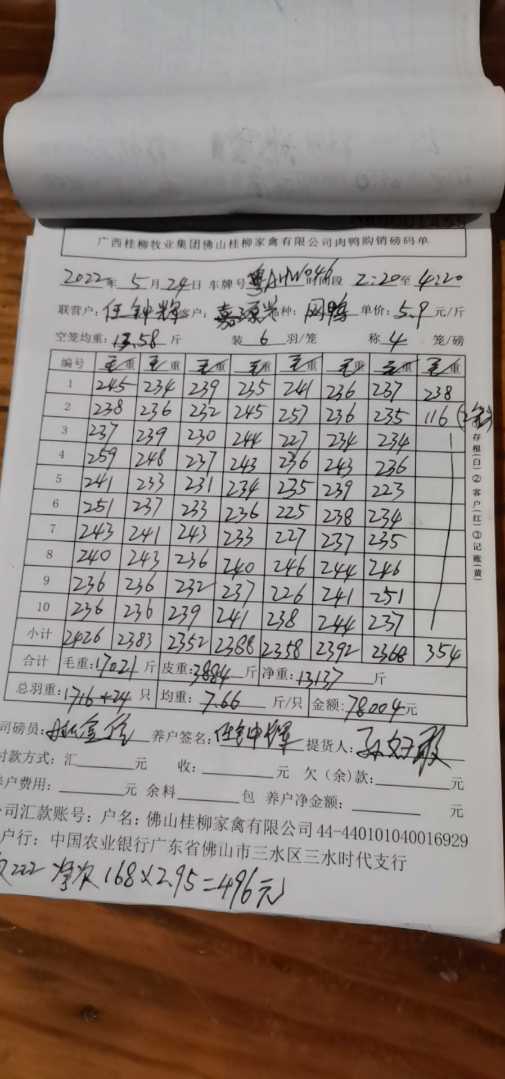 广西桂柳牧业集团佛山桂柳家禽有限公司肉鸭购销磅码单
2022年 5月 24日 车牌号 时间段 2:20至 4:20
联营户: 任钟辉 客户: 嘉源兴 种: 网鸭 单价: 5.9 元/斤
空笼均重: 13.58 斤 装 6 羽/笼 称 4 笼/磅
编号 毛重 毛重 毛重 毛重 毛重 毛重 毛重 毛重
1 245 234 239 235 241 236 237 238
2 238 236 232 245 257 236 235 116
3 237 239 230 244 227 234 234
4 259 248 237 243 236 243 236
5 241 233 231 234 235 239 223
6 251 237 233 236 225 238 234
7 243 241 243 233 227 237 235
8 240 243 236 240 246 244 246
9 236 236 232 237 226 241 251
10 236 236 239 241 238 244 237
小计 2426 2383 2352 2388 2358 2392 2368 354
合计 毛重: 17021 斤 皮重: 3884 斤 净重: 13137 斤
总羽重: 1716+24 只 均重: 7.66 斤/只 金额: 78004元
司磅员: 养户签名: 任钟辉 提货人:
付款方式: 汇 元 收: 元 欠(余)款: 元
养户费用: 元 余料 包 养户净金额: 元
公司汇款账号: 户名: 佛山桂柳家禽有限公司 44-440101040016929
户行: 中国农业银行广东省佛山市三水区三水时代支行
222 168×2.95=496元
存根(白)②客户(红)③记账(黄)